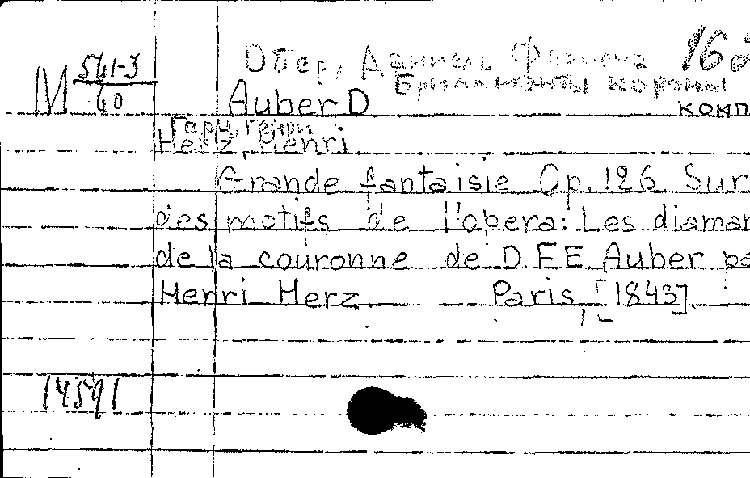 М 561-3/60
Обер, Даниель Франсуа 162
Бриллианты короны
Auber D комп
Гари, Генри
Herz, Henri
Grande fantaisie Op. 126 Sur
des motifs de l'opera: Les diaman
de la couronne de D.F.E Auber pa
Henri Herz Paris, [1843]
14591